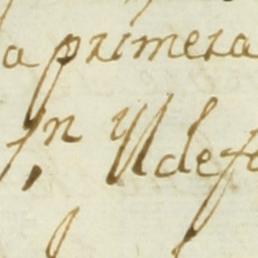 a primera
Sn Yldefo